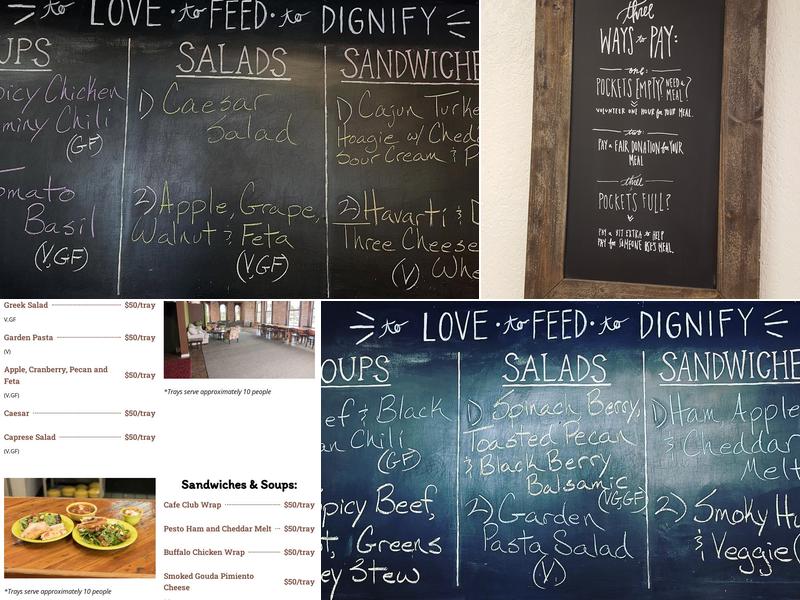 to LOVE · to FEED · to DIGNIFY
SALADS
SANDWICHE
Chicken
Chili
(GF)
Basil
(V,GF)
1) Caesar
Salad
2) Apple, Grape,
Walnut & Feta
(V,GF)
1) Cajun Turke
Hoagie w/ Ched
Sour Cream & P
2) Havarti & D
Three Cheese
(V) Whe
three
WAYS to PAY:
one:
POCKETS EMPTY? NEED a MEAL?
VOLUNTEER ONE HOUR for YOUR MEAL.
two:
PAY a FAIR DONATION for YOUR
MEAL
three
POCKETS FULL?
PAY a BIT EXTRA to HELP
PAY for SOMEONE ELSE'S MEAL.
Greek Salad $50/tray
V,GF
Garden Pasta $50/tray
(V)
Apple, Cranberry, Pecan and
Feta $50/tray
(V,GF)
Caesar $50/tray
Caprese Salad $50/tray
(V,GF)
*Trays serve approximately 10 people
*Trays serve approximately 10 people
Sandwiches & Soups:
Cafe Club Wrap $50/tray
Pesto Ham and Cheddar Melt $50/tray
Buffalo Chicken Wrap $50/tray
Smoked Gouda Pimiento
Cheese $50/tray
to LOVE · to FEED · to DIGNIFY
OUPS
SALADS
SANDWICHE
ef & Black
an Chili
(GF)
picy Beef,
t, Greens
ey Stew
1) Spinach Berry,
Toasted Pecan
& Black Berry
Balsamic
(V,GF)
2) Garden
Pasta Salad
(V)
1) Ham, Apple
& Cheddar
Melt
2) Smoky Hu
& Veggie